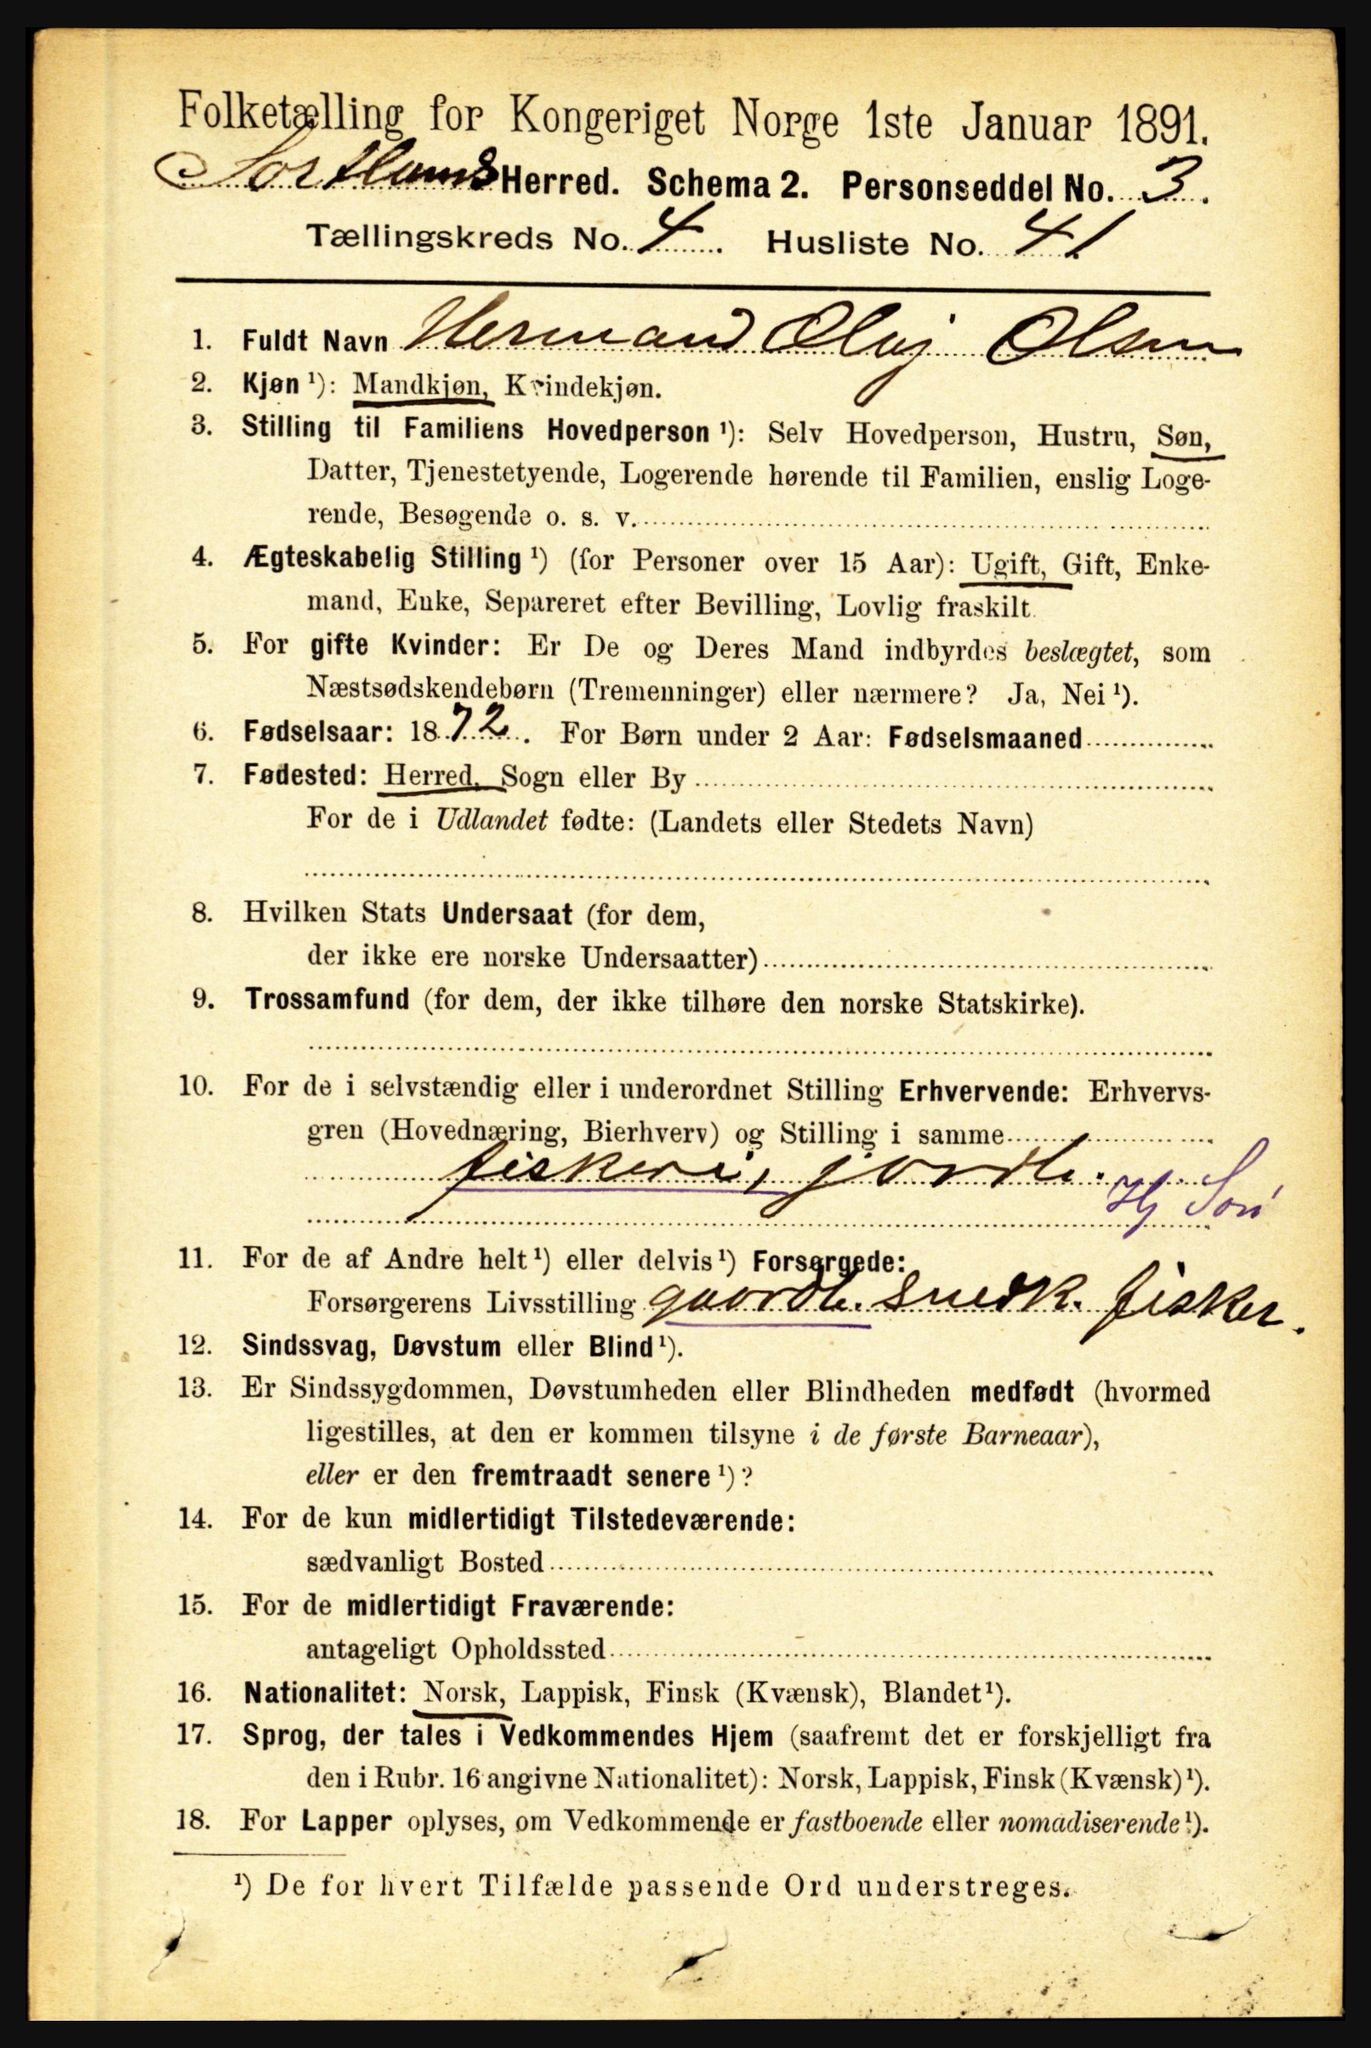 Folketælling for Kongeriget Norge 1ste Januar 1891.
Sortlands Herred. Schema 2. Personseddel No. 3.
Tællingskreds No. 4. Husliste No. 41.
1. Fuldt Navn Hermand Oluf Olsen
2. Kjøn ¹): Mandkjøn, Kvindekjøn.
3. Stilling til Familiens Hovedperson ¹): Selv Hovedperson, Hustru, Søn,
Datter, Tjenestetyende, Logerende hørende til Familien, enslig Loge-
rende, Besøgende o. s. v.
4. Ægteskabelig Stilling ¹) (for Personer over 15 Aar): Ugift, Gift, Enke-
mand, Enke, Separeret efter Bevilling, Lovlig fraskilt.
5. For gifte Kvinder: Er De og Deres Mand indbyrdes beslægtet, som
Næstsødskendebørn (Tremenninger) eller nærmere? Ja, Nei ¹).
6. Fødselsaar: 1872. For Børn under 2 Aar: Fødselsmaaned
7. Fødested: Herred, Sogn eller By
For de i Udlandet fødte: (Landets eller Stedets Navn)
8. Hvilken Stats Undersaat (for dem,
der ikke ere norske Undersaatter)
9. Trossamfund (for dem, der ikke tilhøre den norske Statskirke).
10. For de i selvstændig eller i underordnet Stilling Erhvervende: Erhvervs-
gren (Hovednæring, Bierhverv) og Stilling i samme
fiskeri, jordb.
Hj Søn
11. For de af Andre helt ¹) eller delvis ¹) Forsørgede:
Forsørgerens Livsstilling gaardb. snedk. fisker.
12. Sindssvag, Døvstum eller Blind ¹).
13. Er Sindssygdommen, Døvstumheden eller Blindheden medfødt (hvormed
ligestilles, at den er kommen tilsyne i de første Barneaar),
eller er den fremtraadt senere ¹)?
14. For de kun midlertidigt Tilstedeværende:
sædvanligt Bosted
15. For de midlertidigt Fraværende:
antageligt Opholdssted
16. Nationalitet: Norsk, Lappisk, Finsk (Kvænsk), Blandet ¹).
17. Sprog, der tales i Vedkommendes Hjem (saafremt det er forskjelligt fra
den i Rubr. 16 angivne Nationalitet): Norsk, Lappisk, Finsk (Kvænsk) ¹).
18. For Lapper oplyses, om Vedkommende er fastboende eller nomadiserende ¹).
¹) De for hvert Tilfælde passende Ord understreges.